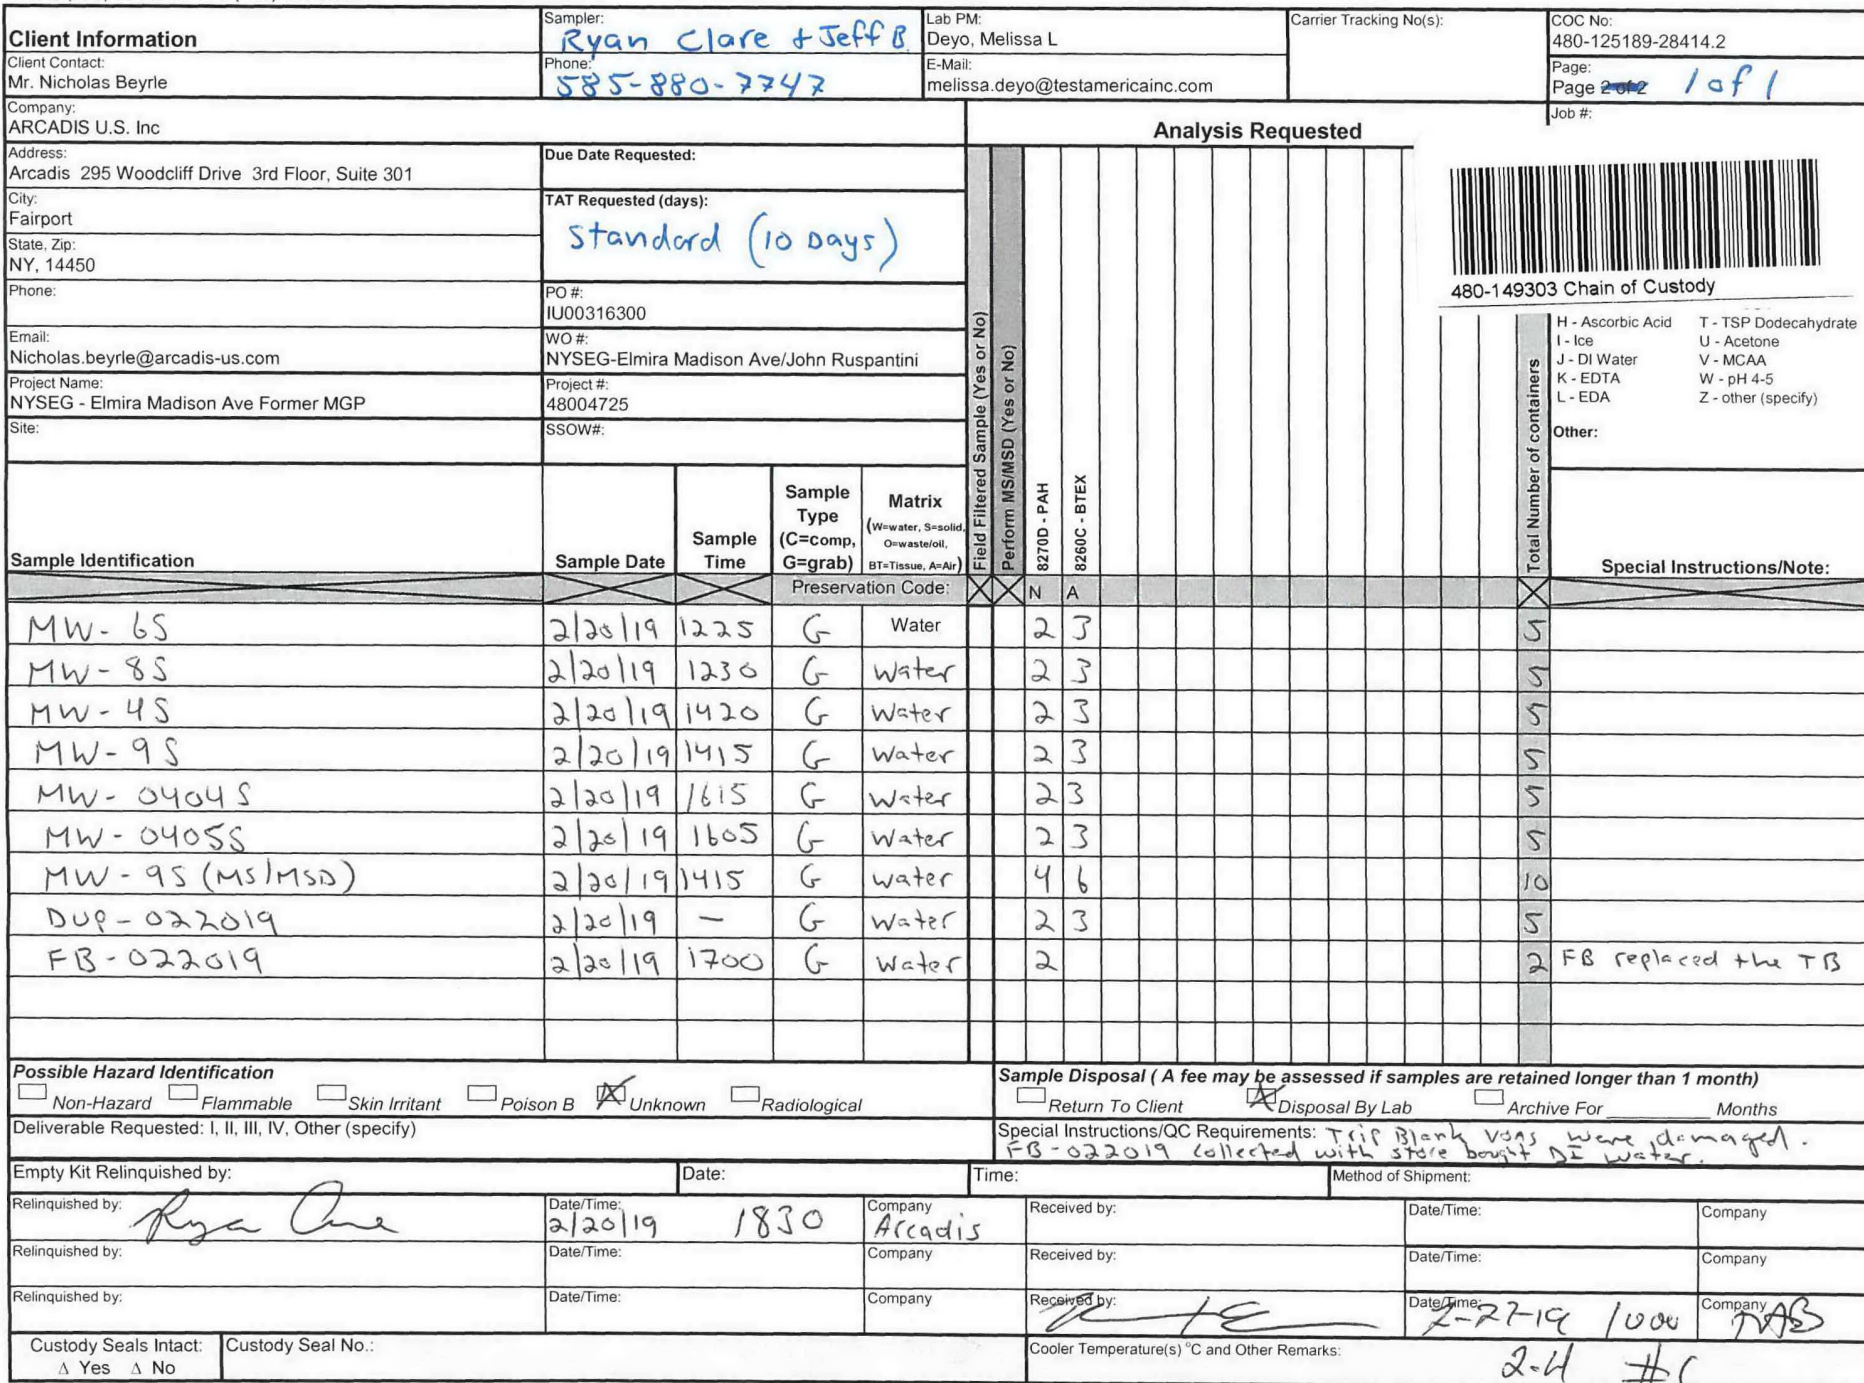 Client Information
Sampler:
Ryan Clare + Jeff B
Lab PM:
Deyo, Melissa L
Carrier Tracking No(s):
COC No:
480-125189-28414.2
Client Contact:
Mr. Nicholas Beyrle
Phone:
585-880-7747
E-Mail:
melissa.deyo@testamericainc.com
Page:
Page 2 of 2 1 of 1
Company:
ARCADIS U.S. Inc
Analysis Requested
Job #:
Address:
Arcadis 295 Woodcliff Drive 3rd Floor, Suite 301
Due Date Requested:
City:
Fairport
TAT Requested (days):
Standard (10 Days)
State, Zip:
NY, 14450
480-149303 Chain of Custody
Phone:
PO #:
IU00316300
Email:
Nicholas.beyrle@arcadis-us.com
WO #:
NYSEG-Elmira Madison Ave/John Ruspantini
Project Name:
NYSEG - Elmira Madison Ave Former MGP
Project #:
48004725
Site:
SSOW#:
H - Ascorbic Acid T - TSP Dodecahydrate
I - Ice U - Acetone
J - DI Water V - MCAA
K - EDTA W - pH 4-5
L - EDA Z - other (specify)
Other:
Sample Identification
Sample Date
Sample Time
Sample Type (C=comp, G=grab)
Matrix (W=water, S=solid, O=waste/oil, BT=Tissue, A=Air)
Field Filtered Sample (Yes or No)
Perform MS/MSD (Yes or No)
8270D - PAH
8260C - BTEX
Total Number of containers
Special Instructions/Note:
Preservation Code: N A
MW-6S 2/20/19 1225 G Water 2 3 5
MW-8S 2/20/19 1230 G Water 2 3 5
MW-4S 2/20/19 1420 G Water 2 3 5
MW-9S 2/20/19 1415 G Water 2 3 5
MW-0404S 2/20/19 1615 G Water 2 3 5
MW-0405S 2/20/19 1605 G Water 2 3 5
MW-9S (MS/MSD) 2/20/19 1415 G Water 4 6 10
DUP-022019 2/20/19 - G Water 2 3 5
FB-022019 2/20/19 1700 G Water 2 2 FB replaced the TB
Possible Hazard Identification
Non-Hazard Flammable Skin Irritant Poison B Unknown Radiological
Sample Disposal ( A fee may be assessed if samples are retained longer than 1 month)
Return To Client Disposal By Lab Archive For ________ Months
Deliverable Requested: I, II, III, IV, Other (specify)
Special Instructions/QC Requirements: Trip Blank VOAs were damaged.
FB-022019 collected with store bought DI water.
Empty Kit Relinquished by:
Date:
Time:
Method of Shipment:
Relinquished by:
Date/Time:
2/20/19 1830
Company
Arcadis
Received by:
Date/Time:
Company
Relinquished by:
Date/Time:
Company
Received by:
Date/Time:
Company
Relinquished by:
Date/Time:
Company
Received by:
Date/Time:
1000
Company
Custody Seals Intact:
Δ Yes Δ No
Custody Seal No.:
Cooler Temperature(s) °C and Other Remarks:
2.4 #1